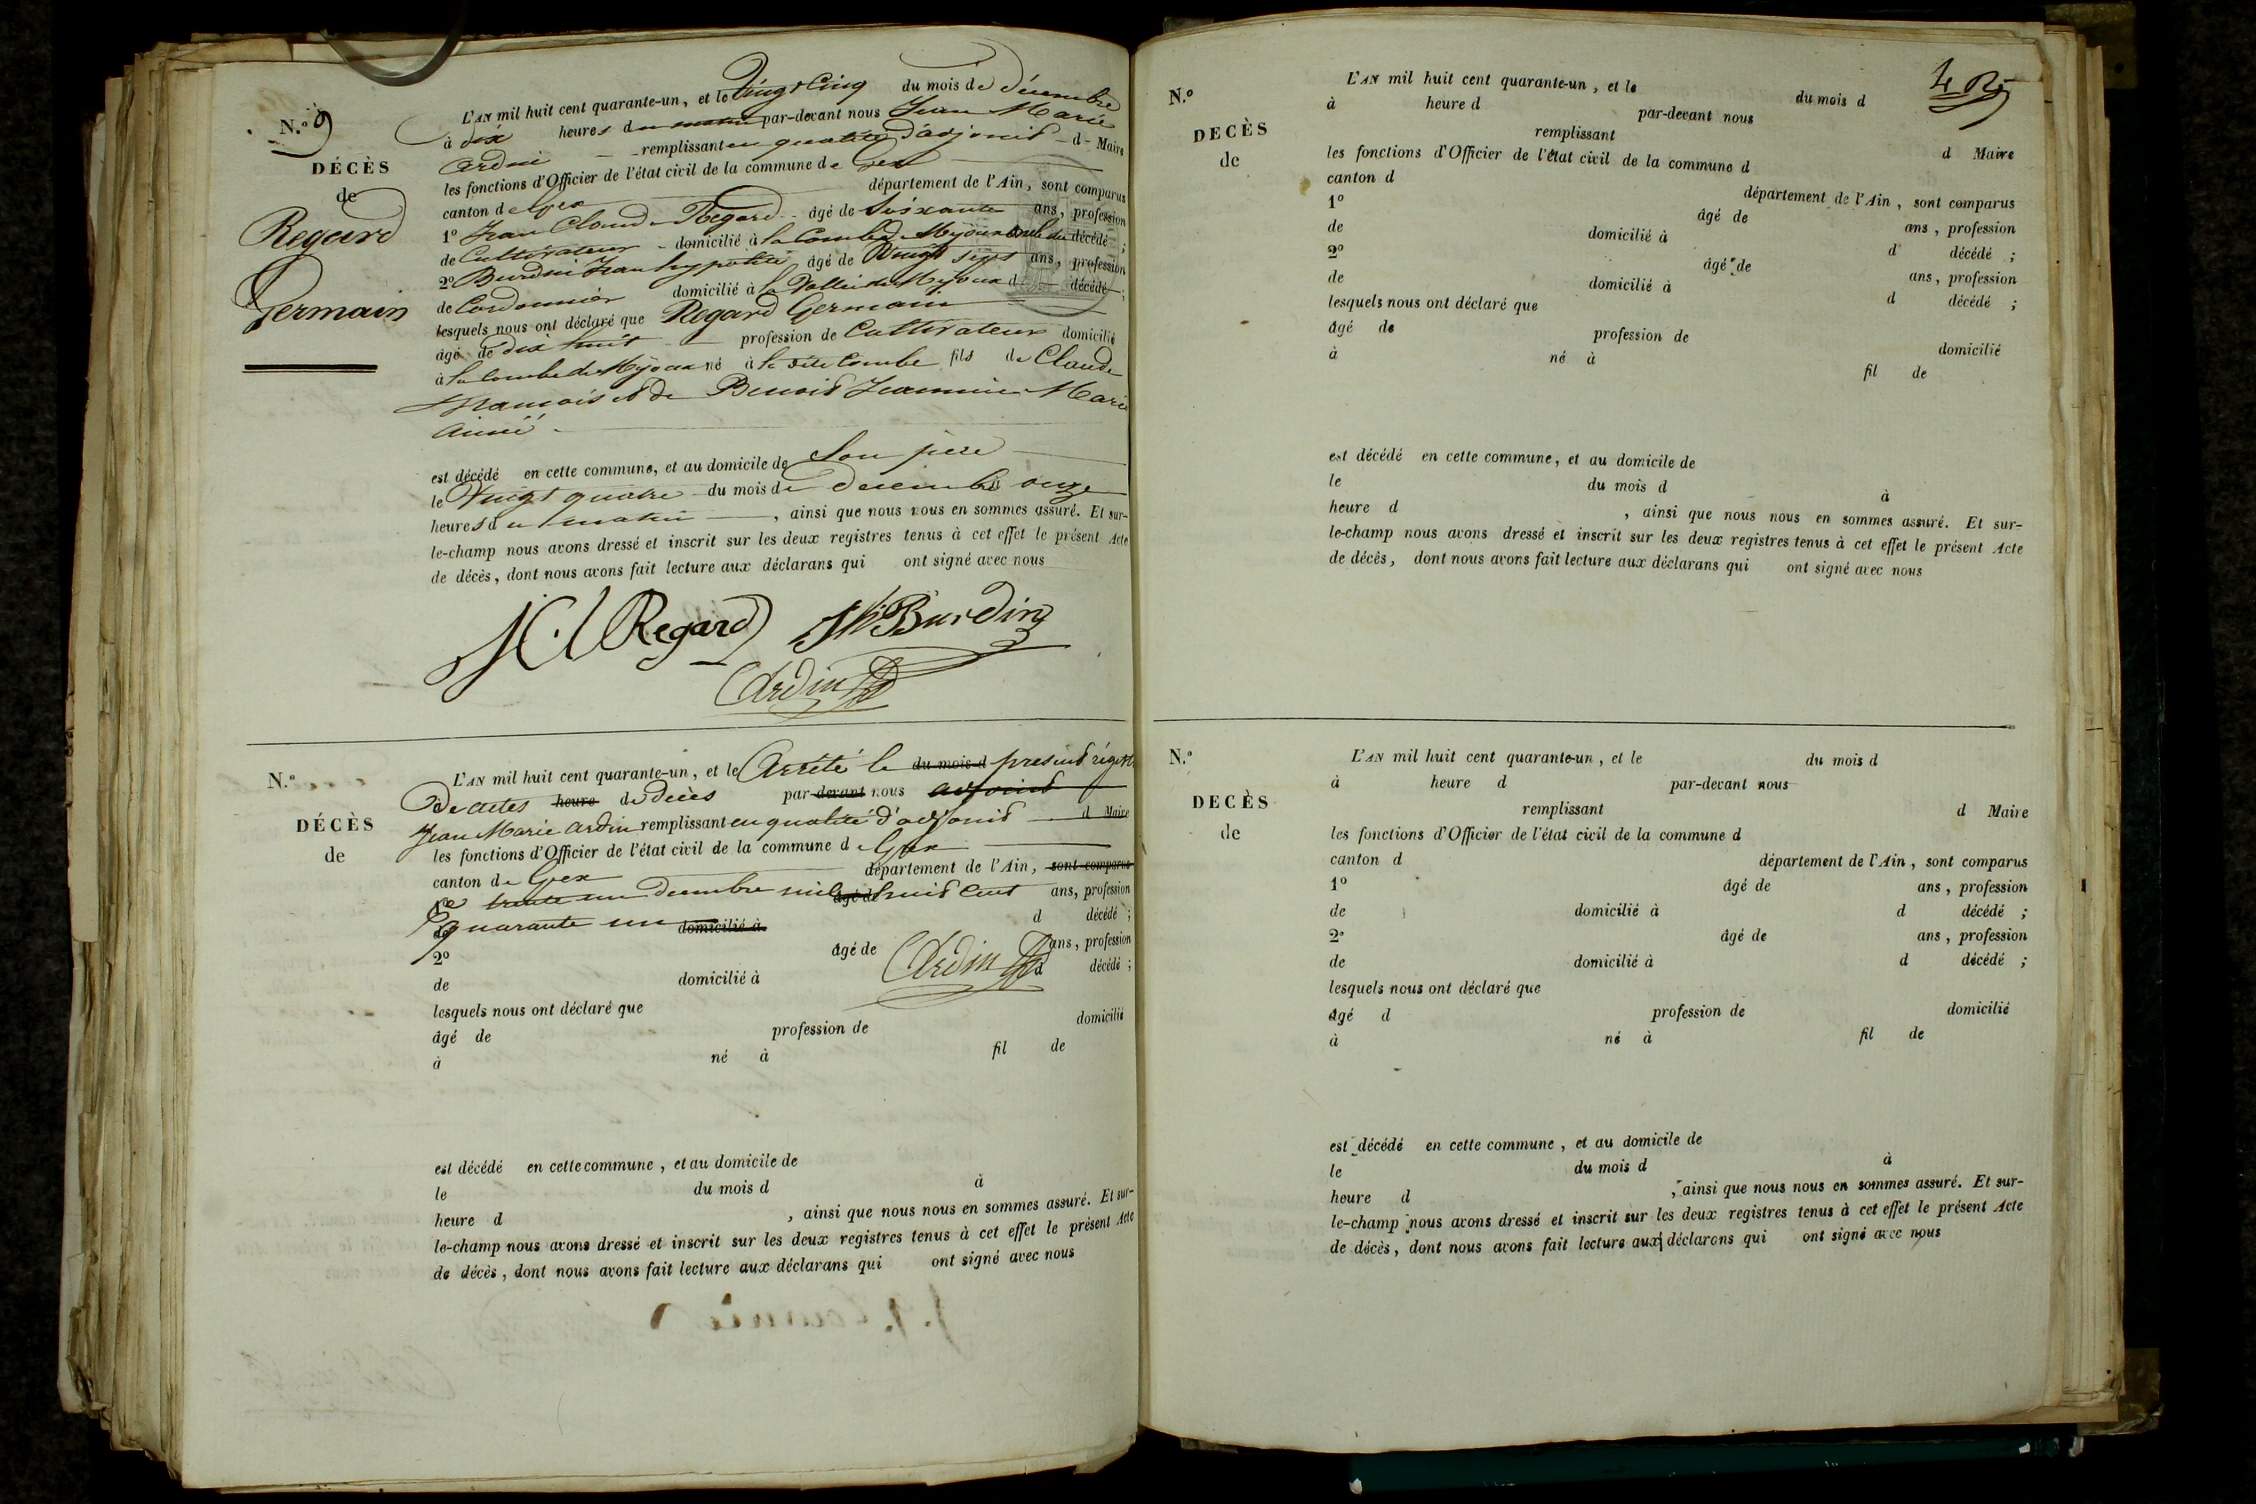 N.º 9
DÉCÈS
de
Regard
Germain
L'AN mil huit cent quarante-un, et le Vingt Cinq du mois de décembre
à dix heures du matin par-devant nous Jean Marie
Ardin remplissant en qualité d'adjoint d - Maire
les fonctions d'Officier de l'état civil de la commune de Gex
canton de Gex département de l'Ain, sont comparus
1º Jean Claude Regard âgé de Soixante ans, profession
de Cultivateur domicilié à la Combe de Mijoux oncle du décédé ;
2º Burdin Jean hypolite âgé de Vingt sept ans, profession
de Cordonnier domicilié à la Vallée de Mijoux d décédé ;
lesquels nous ont déclaré que Regard Germain
âgé de dix huit profession de Cultivateur domicilié
à la Combe de Mijoux né à la dite Combe fils de Claude
François et de Benoit Jeannine Marie
Aimé
est décédé en cette commune, et au domicile de Son père
le Vingt quatre du mois de decembre à onze
heures du matin , ainsi que nous nous en sommes assuré. Et sur-
le-champ nous avons dressé et inscrit sur les deux registres tenus à cet effet le présent Acte
de décès, dont nous avons fait lecture aux déclarans qui ont signé avec nous
J C Regard JH Burdin
Ardin
N.º
DÉCÈS
de
L'AN mil huit cent quarante-un, et le Arrêté le du mois d present régistre
De actes heure de decès par-devant nous adjoint
Jean Marie Ardin remplissant en qualité d'adjoint d Maire
les fonctions d'Officier de l'état civil de la commune de Gex
canton de Gex département de l'Ain, sont comparus
Ce trente un decembre mil âgé de huit Cent ans, profession
de quarante un domicilié à d décédé ;
2º âgé de ans, profession
de domicilié à Ardin d décédé ;
lesquels nous ont déclaré que
âgé de profession de domicilié
à né à fil de
est décédé en cette commune, et au domicile de
le du mois d à
heure d , ainsi que nous nous en sommes assuré. Et sur-
le-champ nous avons dressé et inscrit sur les deux registres tenus à cet effet le présent Acte
de décès, dont nous avons fait lecture aux déclarans qui ont signé avec nous
N.º
DECÈS
de
L'AN mil huit cent quarante-un, et le du mois d
à heure d par-devant nous
remplissant d Maire
les fonctions d'Officier de l'état civil de la commune d
canton d département de l'Ain, sont comparus
1º âgé de ans, profession
de domicilié à d décédé ;
2º âgé de ans, profession
de domicilié à d décédé ;
lesquels nous ont déclaré que
âgé de profession de domicilié
à né à fil de
est décédé en cette commune, et au domicile de
le du mois d à
heure d , ainsi que nous nous en sommes assuré. Et sur-
le-champ nous avons dressé et inscrit sur les deux registres tenus à cet effet le présent Acte
de décès, dont nous avons fait lecture aux déclarans qui ont signé avec nous
N.º
DECÈS
de
L'AN mil huit cent quarante-un, et le du mois d
à heure d par-devant nous
remplissant d Maire
les fonctions d'Officier de l'état civil de la commune d
canton d département de l'Ain, sont comparus
1º âgé de ans, profession
de domicilié à d décédé ;
2º âgé de ans, profession
de domicilié à d décédé ;
lesquels nous ont déclaré que
âgé d profession de domicilié
à né à fil de
est décédé en cette commune, et au domicile de
le du mois d à
heure d , ainsi que nous nous en sommes assuré. Et sur-
le-champ nous avons dressé et inscrit sur les deux registres tenus à cet effet le présent Acte
de décès, dont nous avons fait lecture aux déclarans qui ont signé avec nous